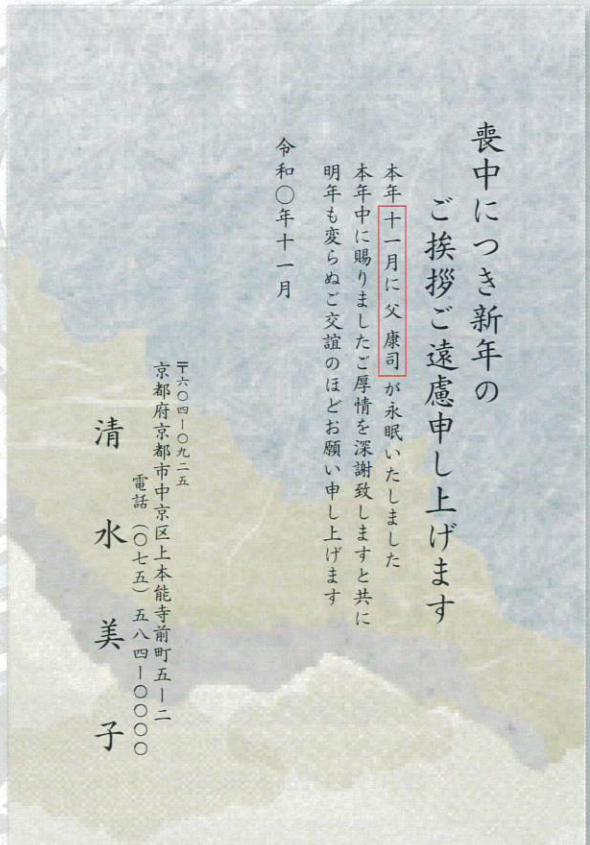 喪中につき新年の
ご挨拶ご遠慮申し上げます
本年十一月に父 康司が永眠いたしました
本年中に賜りましたご厚情を深謝致しますと共に
明年も変らぬご交誼のほどお願い申し上げます
令和〇年十一月
〒六〇四―〇九二五
京都府京都市中京区上本能寺前町五―二
電話（〇七五）五八四―〇〇〇〇
清水美子